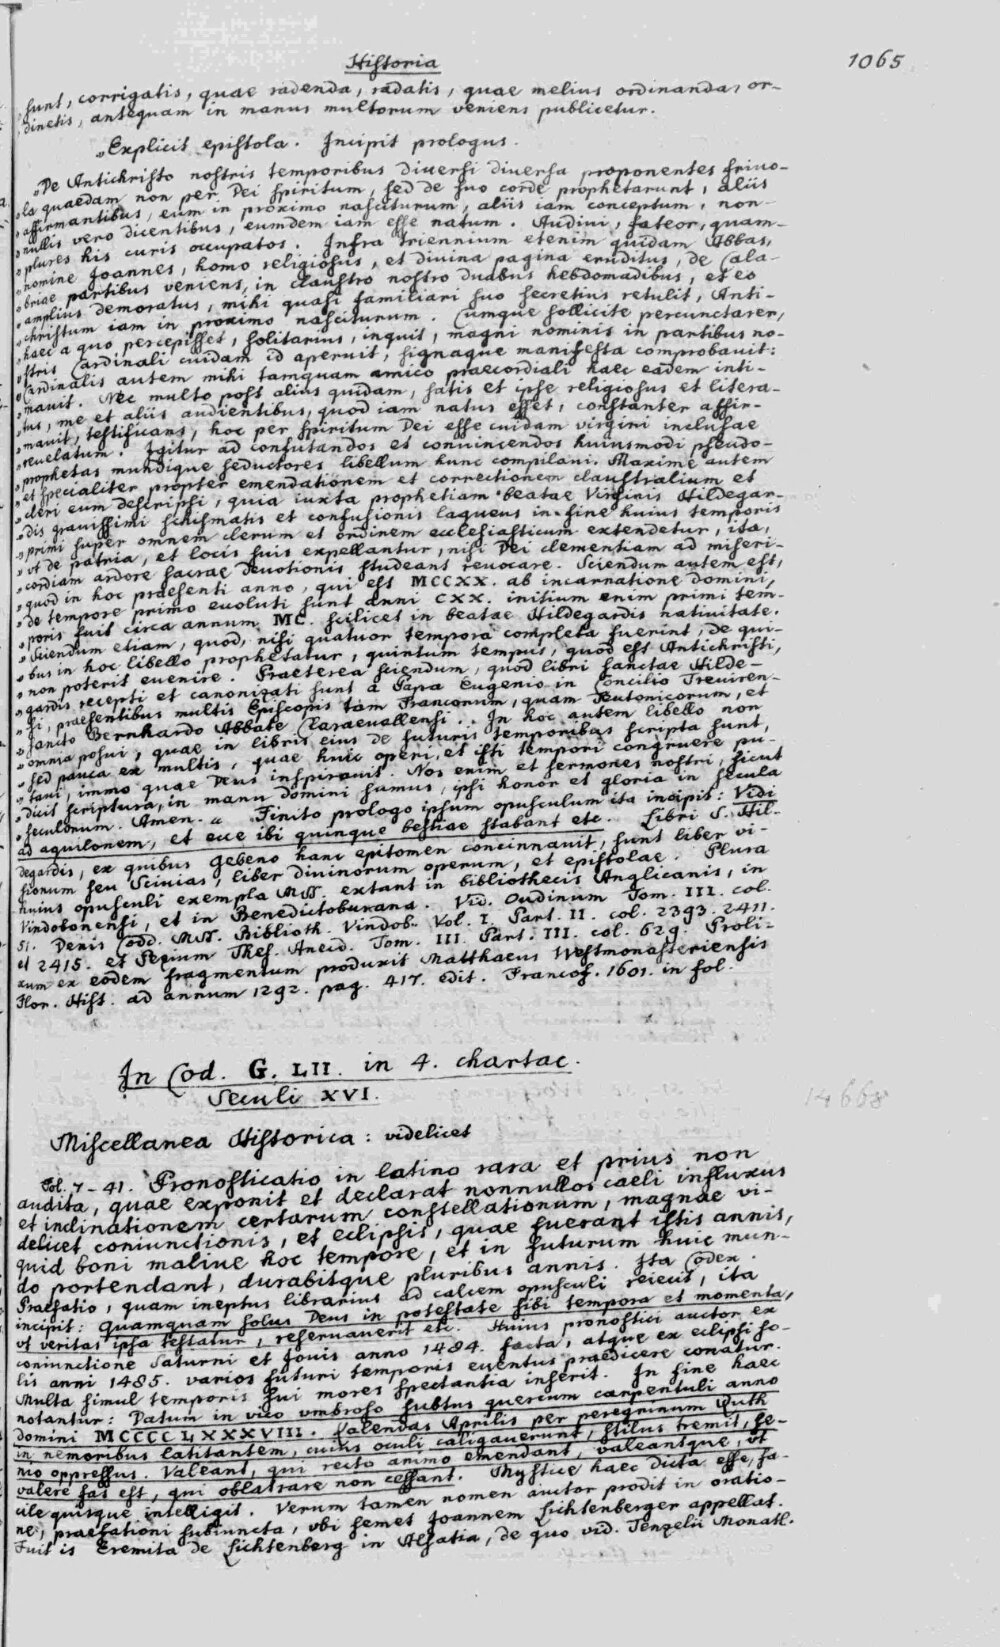 Historia
1065
sunt, corrigatis, quae radenda, radatis, quae melius ordinanda, or-
dinetis, antequam in manus multorum veniens publicetur.
„Explicit epistola. Incipit prologus.
„De Antichristo nostris temporibus diuersi diuersa proponentes friuo-
„la quaedam non per Dei spiritum, sed de suo corde prophetarunt, aliis
„affirmantibus, eum in proximo nasciturum, aliis iam conceptum, non-
„nullis vero dicentibus, eumdem iam esse natum. Audiui, fateor, quam-
„plures his curis occupatos. Infra triennium etenim quidam Abbas,
„nomine Joannes, homo religiosus, et diuina pagina eruditus, de Cala-
„briae partibus veniens, in claustro nostro duabus hebdomadibus, et eo
„amplius demoratus, mihi quasi familiari suo secretius retulit, Anti-
„christum iam in proximo nasciturum. Cumque sollicite percunctarer,
„haec a quo percepisset, solitarius, inquit, magni nominis in partibus no-
„stris Cardinali cuidam id aperuit, signaque manifesta comprobauit:
„Cardinalis autem mihi tamquam amico praecordiali haec eadem inti-
„mauit. Nec multo post alius quidam, satis et ipse religiosus et litera-
„tus, me et aliis audientibus, quod iam natus esset, constanter affir-
„mauit, testificans, hoc per spiritum Dei esse cuidam virgini inclusae
„reuelatum. Igitur ad confutandos et conuincendos huiusmodi pseudo-
„prophetas mundique seductores libellum hunc compilaui. Maxime autem
„et specialiter propter emendationem et correctionem claustralium et
„cleri eum descripsi, quia iuxta prophetiam beatae Virginis Hildegar-
„dis grauissimi schismatis et confusionis laqueus in fine huius temporis
„primi super omnem clerum et ordinem ecclesiasticum extendetur, ita,
„vt de patria, et locis suis expellantur, nisi Dei clementiam ad miseri-
„cordiam ardore sacrae deuotionis studeant reuocare. Sciendum autem est,
„quod in hoc praesenti anno, qui est MCCXX. ab incarnatione domini,
„de tempore primo euoluti sunt anni CXX. initium enim primi tem-
„poris fuit circa annum MC. scilicet in beatae Hildegardis natiuitate.
„Sciendum etiam, quod, nisi quatuor tempora completa fuerint, de qui-
„bus in hoc libello prophetatur, quintum tempus, quod est Antichristi,
„non poterit euenire. Praeterea sciendum, quod libri sanctae Hilde-
„gardis recepti et canonizati sunt a Papa Eugenio in Concilio Treuiren-
„si, praesentibus multis Episcopis tam Francorum, quam Teutonicorum, et
„sancto Bernhardo Abbate Claraeuallensi. In hoc autem libello non
„omnia posui, quae in libris eius de futuris temporibus scripta sunt,
„sed pauca ex multis, quae huic operi, et isti tempori congruere pu-
„taui, immo quae Deus inspirauit. Nos enim et sermones nostri, sicut
„dicit scriptura, in manu domini sumus, ipsi honor et gloria in secula
„seculorum. Amen. „ Finito prologo ipsum opusculum ita incipit: Vidi
ad aquilonem, et ecce ibi quinque bestiae stabant etc. Libri S. Hil-
degardis, ex quibus Gebeno hanc epitomen concinnauit, sunt liber vi-
sionum seu Sciuias, liber diuinorum operum, et epistolae. Plura
huius opusculi exempla MSS. extant in bibliothecis Anglicanis, in
Vindobonensi, et in Benedictoburana. Vid. Oudinum Tom. III. col.
51. Denis Codd. MSS. Biblioth. Vindob. Vol. I. Part. II. col. 2393. 2411.
et 2415. et Pezium Thes. Anecd. Tom. III. Part. III. col. 629. Proli-
xum ex eodem fragmentum produxit Matthaeus Westmonasteriensis
Flor. Hist. ad annum 1292. pag. 417. edit. Francof. 1601. in fol.
In Cod. G. LII. in 4. chartac.
Seculi XVI.
14668
Miscellanea Historica: videlicet
Fol. 7-41. Pronosticatio in latino rara et prius non
audita, quae exponit et declarat nonnullos caeli influxus
et inclinationem certarum constellationum, magnae vi-
delicet coniunctionis, et eclipsis, quae fuerant istis annis,
quid boni maliue hoc tempore, et in futurum huic mun-
do portendant, durabitque pluribus annis. Ita Codex.
Praefatio, quam ineptus librarius ad calcem opusculi reiecit, ita
incipit: Quamquam solus Deus in potestate sibi tempora et momenta,
vt veritas ipsa testatur, reseruauerit etc. Huius pronostici auctor ex
coniunctione Saturni et Jouis anno 1484. facta, atque ex eclipsi so-
lis anni 1485. varios futuri temporis euentus praedicere conatur.
Multa simul temporis sui mores spectantia inserit. In fine haec
notantur: Datum in vico vmbroso subtus quercum carpentuli anno
domini MCCCCLXXXVIII. Calendas Aprilis per peregrinum Ruth
in nemoribus latitantem, cuius oculi caligauerunt, stilus tremit, se-
nio oppressus. Valeant, qui recto animo emendant, valeantque, vt
valere fas est, qui oblatrare non cessant. Mystice haec dicta esse, fa-
cile quisque intelligit. Verum tamen nomen auctor prodit in oratio-
ne, praefationi subiuncta, vbi semet Joannem Lichtenberger appellat.
Fuit is Eremita de Lichtenberg in Alsatia, de quo vid. Tenzelii Monatl.